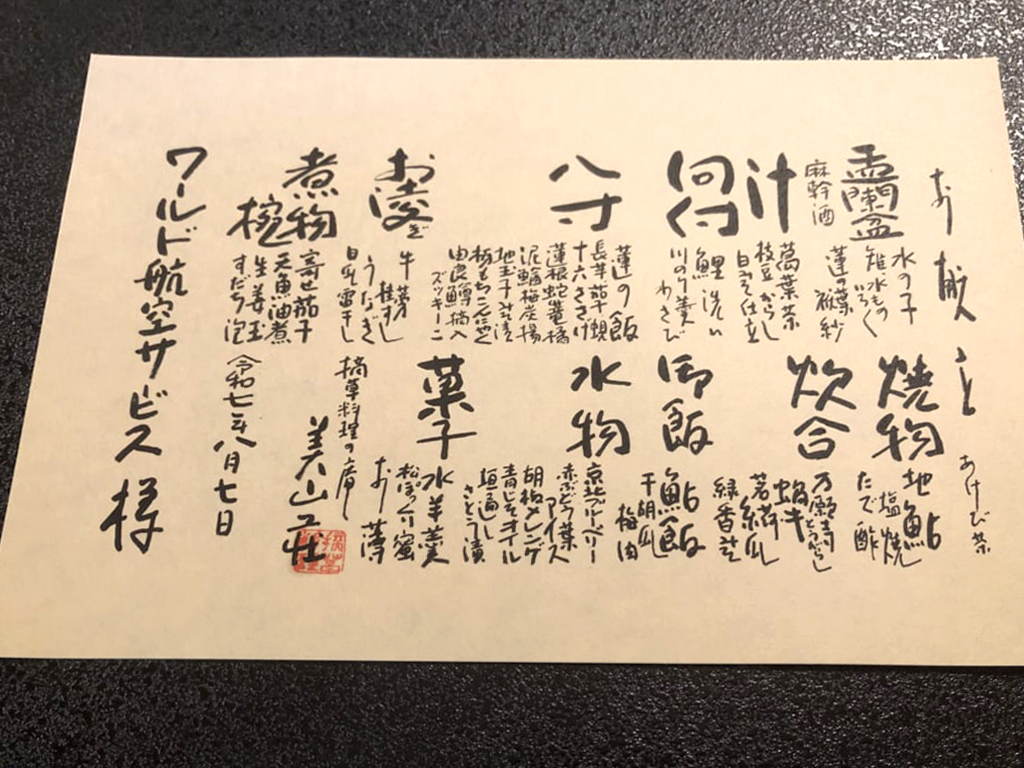 お献立
あけび茶
盂蘭盆
麻幹酒
水の子
雑水もの
いろく
蓮の葉
袱紗
汁
萬葉茶
枝豆 からし
白みそ仕立
向付
鯉洗い
川のり羹
わさび
八寸
蓮の飯
長芋茄子
十六ささげ
蓮根
地玉子みそ漬
栃もちこんにゃく
ズッキーニ
お凌ぎ
牛蒡
うなぎ
煮物椀
寄せ茄子
天魚油煮
生姜玉
すだち泡
焼物
地鮎
塩焼
たで酢
炊合
万願寺とうがらし
若荷瓜
緑香煮
御飯
鮎飯
干胡瓜
梅肉
水物
京北ブルーベリー
赤ぶどう葉
アイス
胡桃メレンゲ
青じそオイル
垣通し
さとう漬
菓子
水羊羹
松ぼっくり蜜
お薄
摘草料理の庫
美山荘
令和七年八月七日
ワールド航空サービス様